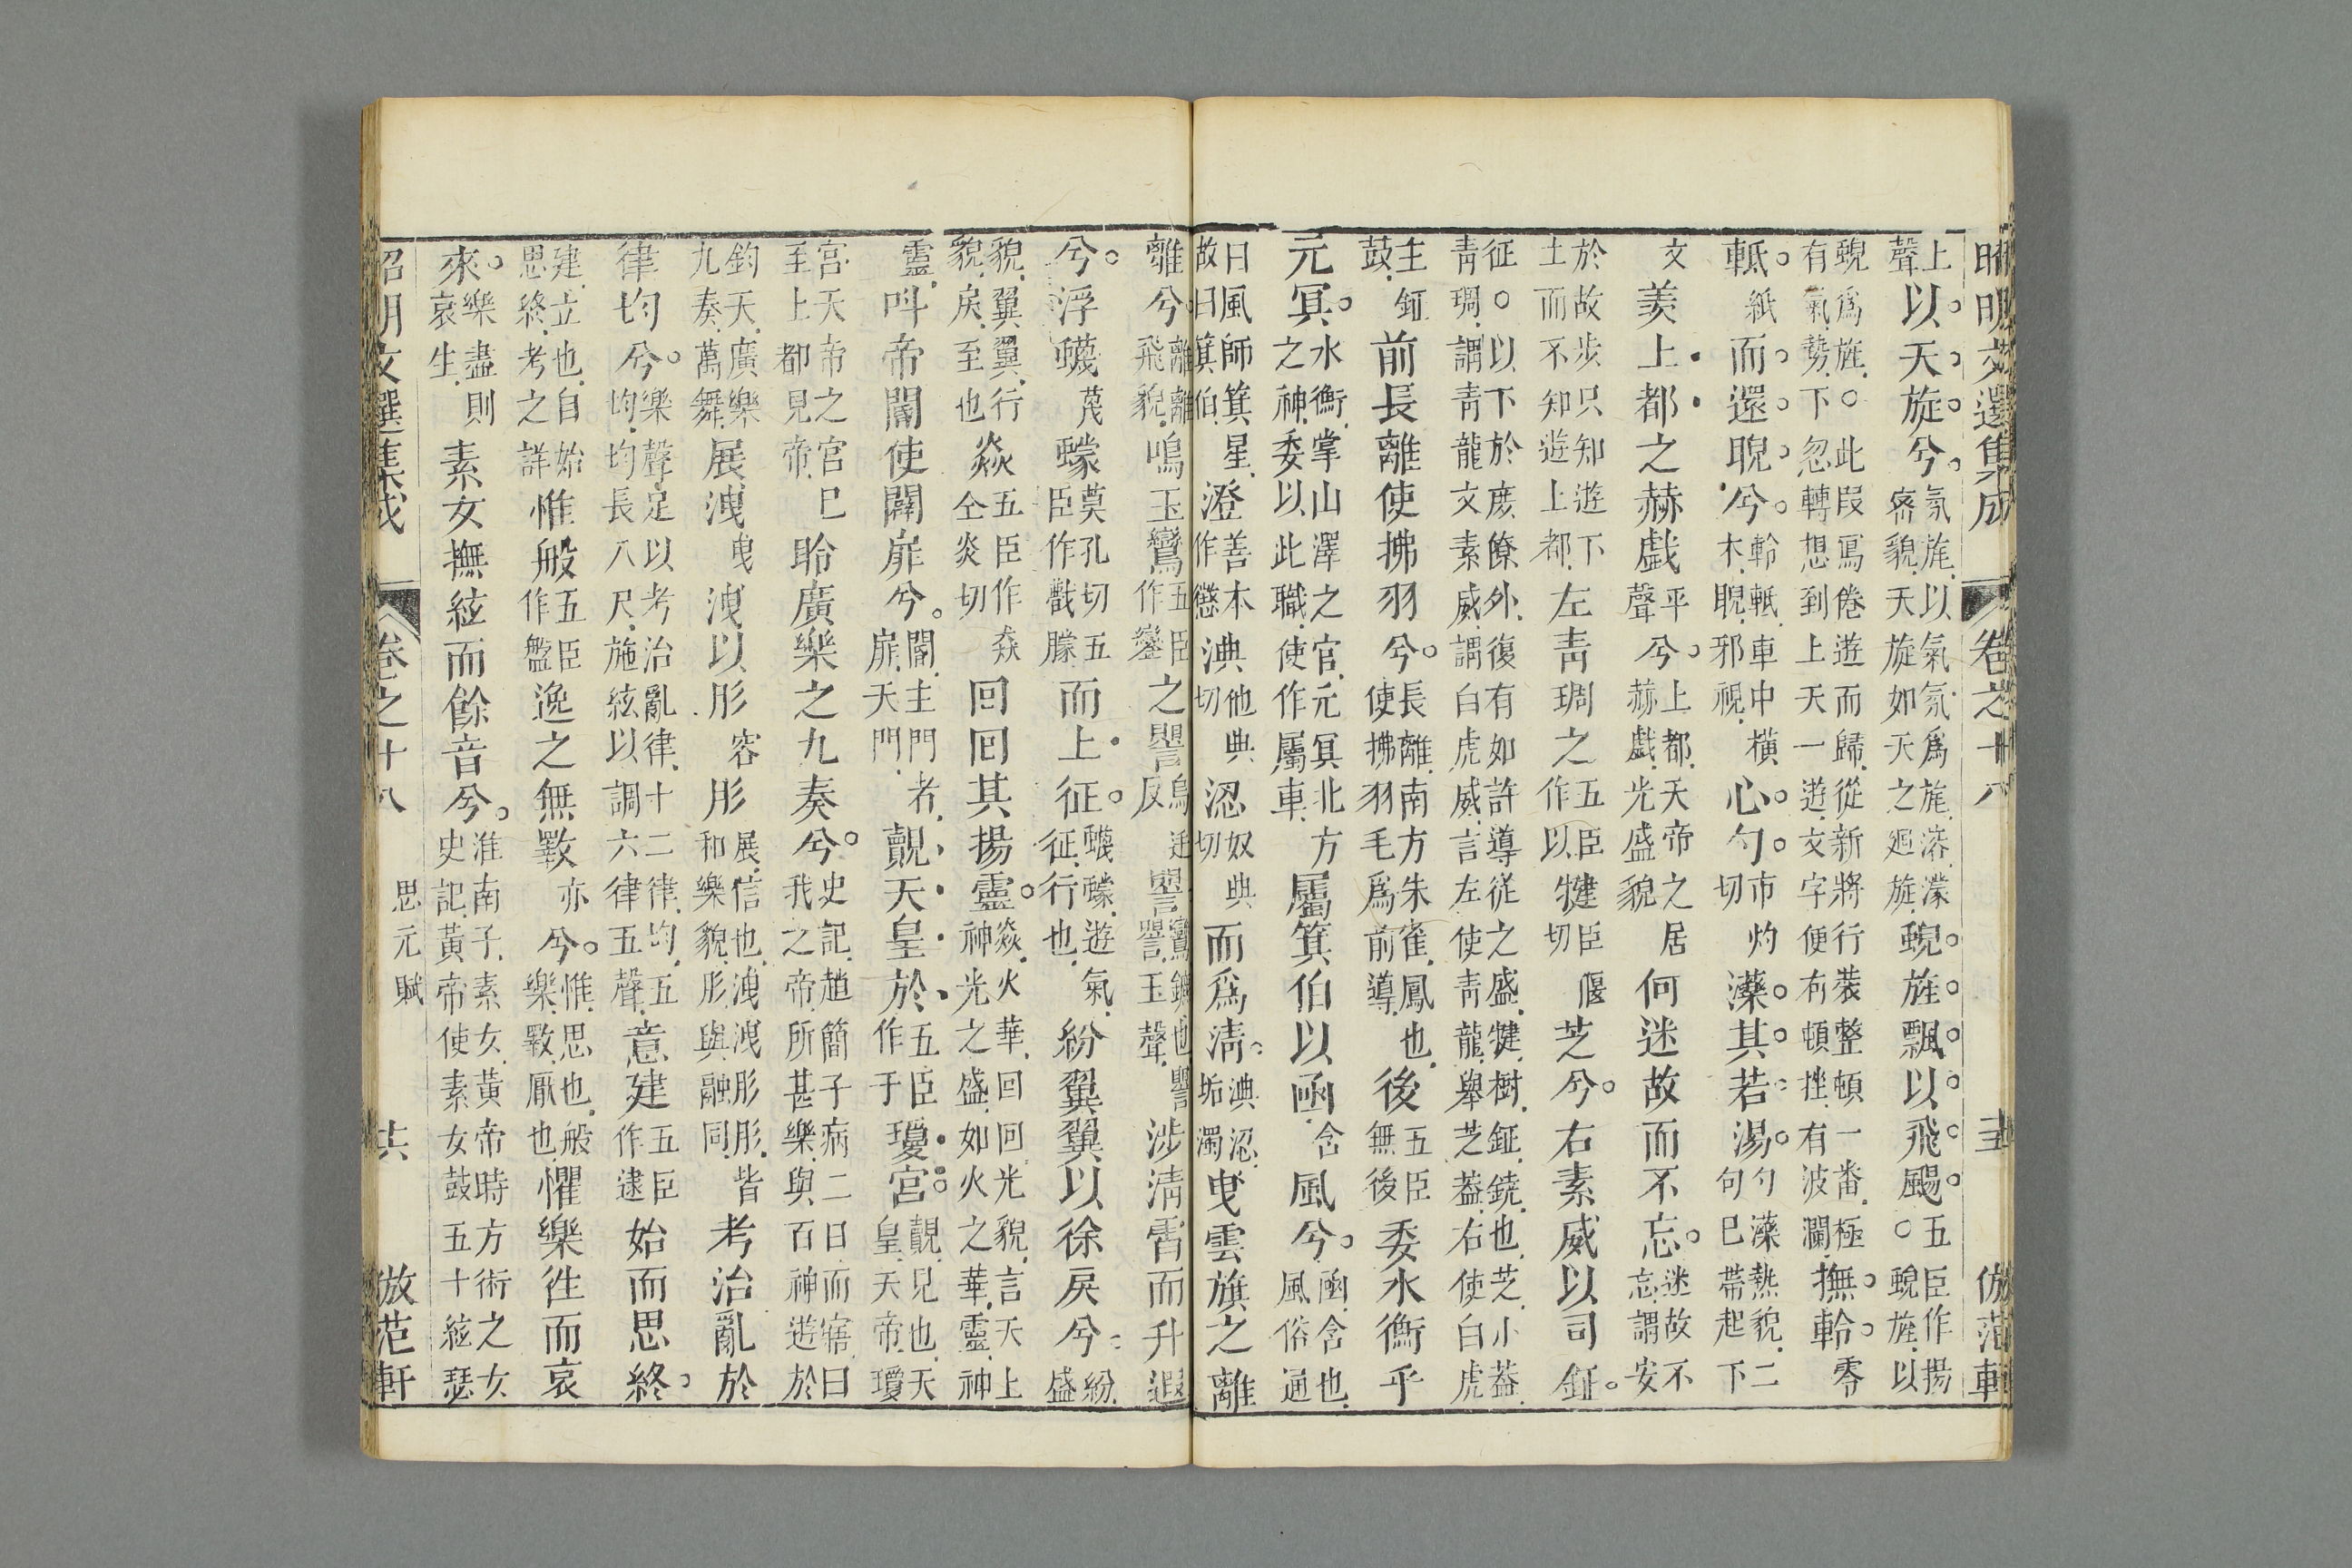 昭明文選集成 卷之十八 圭 倣范軒
上聲以天旋兮氛旄以氣氛為旄溶濛密貌天旋如天之廻旋蜺旄飄以飛颺五臣作揚○蜺旄以
蜺為旄○此段寫倦遊而歸從新將行裝整頓一番極有氣勢下忽轉想到上天一遊文字便有頓挫有波瀾撫軨零
軝紙而還睨兮軨軝車中橫木睨邪視心勺市灼切濼其若湯勺濼熱貌二句已帶起下
文羨上都之赫戲平聲兮上都天帝之居赫戲光盛貌何迷故而不忘迷故不忘謂安
於故步只知遊下土而不知遊上都左青琱之五臣作以犍臣偃切芝兮右素威以司鉦
征○以下於庶僚外復有如許導從之盛犍樹鉦鐃也芝小葢青琱謂青龍文素威謂白虎威言左使青龍舉芝葢右使白虎
主鉦鼓前長離使拂羽兮長離南方朱雀鳳也使拂羽毛為前導後五臣無後委水衡乎
元冥水衡掌山澤之官元冥北方之神委以此職使作屬車屬箕伯以函含風兮函含也風俗通
曰風師箕星故曰箕伯澄善本作懲淟他典切涊奴典切而為清淟涊垢濁曳雲旗之離
離兮離離飛貌鳴玉鸞五臣作鑾之譻烏反譻鸞鑣也譻譻玉聲涉清霄而升遐
兮浮蠛蔑蠓莫孔切五臣作戩朦而上征蠛蠓遊氣征行也紛翼翼以徐戾兮紛盛
貌翼翼行貌戾至也焱五臣作㷋仝炎切回回其揚靈焱火華回回光貌言天上神光之盛如火之華靈神
靈叫帝閽使闢扉兮閽主門者扉天門覿天皇於五臣作于瓊宮覿見也天皇天帝瓊
宮天帝之宮至上都見帝巳聆廣樂之九奏兮史記趙簡子病二日而寤曰我之帝所甚樂與百神遊於
鈞天廣樂九奏萬舞展洩曳洩以肜容肜展信也洩洩肜肜皆和樂貌肜與融同考治亂於
律均兮樂聲足以考治亂律十二律均五均均長八尺施絃以調六律五聲意建五臣作逮始而思終
建立也自始思終考之詳惟般五臣作盤逸之無斁亦兮惟思也般樂斁厭也懼樂徃而哀
來樂盡則哀生素女撫絃而餘音兮淮南子素女黃帝時方術之女史記黃帝使素女鼓五十絃瑟
昭明文選集成 卷之十八 思元賦 共 倣范軒